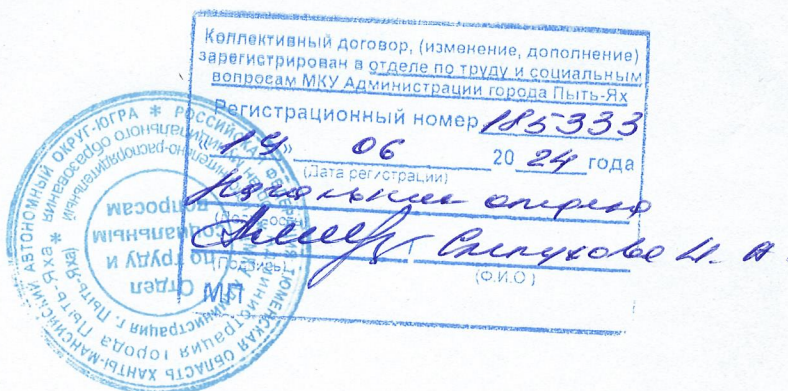 Коллективный договор, (изменение, дополнение)
зарегистрирован в отделе по труду и социальным
вопросам МКУ Администрации города Пыть-Ях
Регистрационный номер 185333
«19» 06 2024 года
(Дата регистрации)
Начальник отдела
(Должность)
(Подпись)
(Ф.И.О)
МП
РОССИЙСКАЯ ФЕДЕРАЦИЯ ТЮМЕНСКАЯ ОБЛАСТЬ ХАНТЫ-МАНСИЙСКИЙ АВТОНОМНЫЙ ОКРУГ-ЮГРА
администрация города Пыть-Яха
Отдел
по труду и
социальным
вопросам